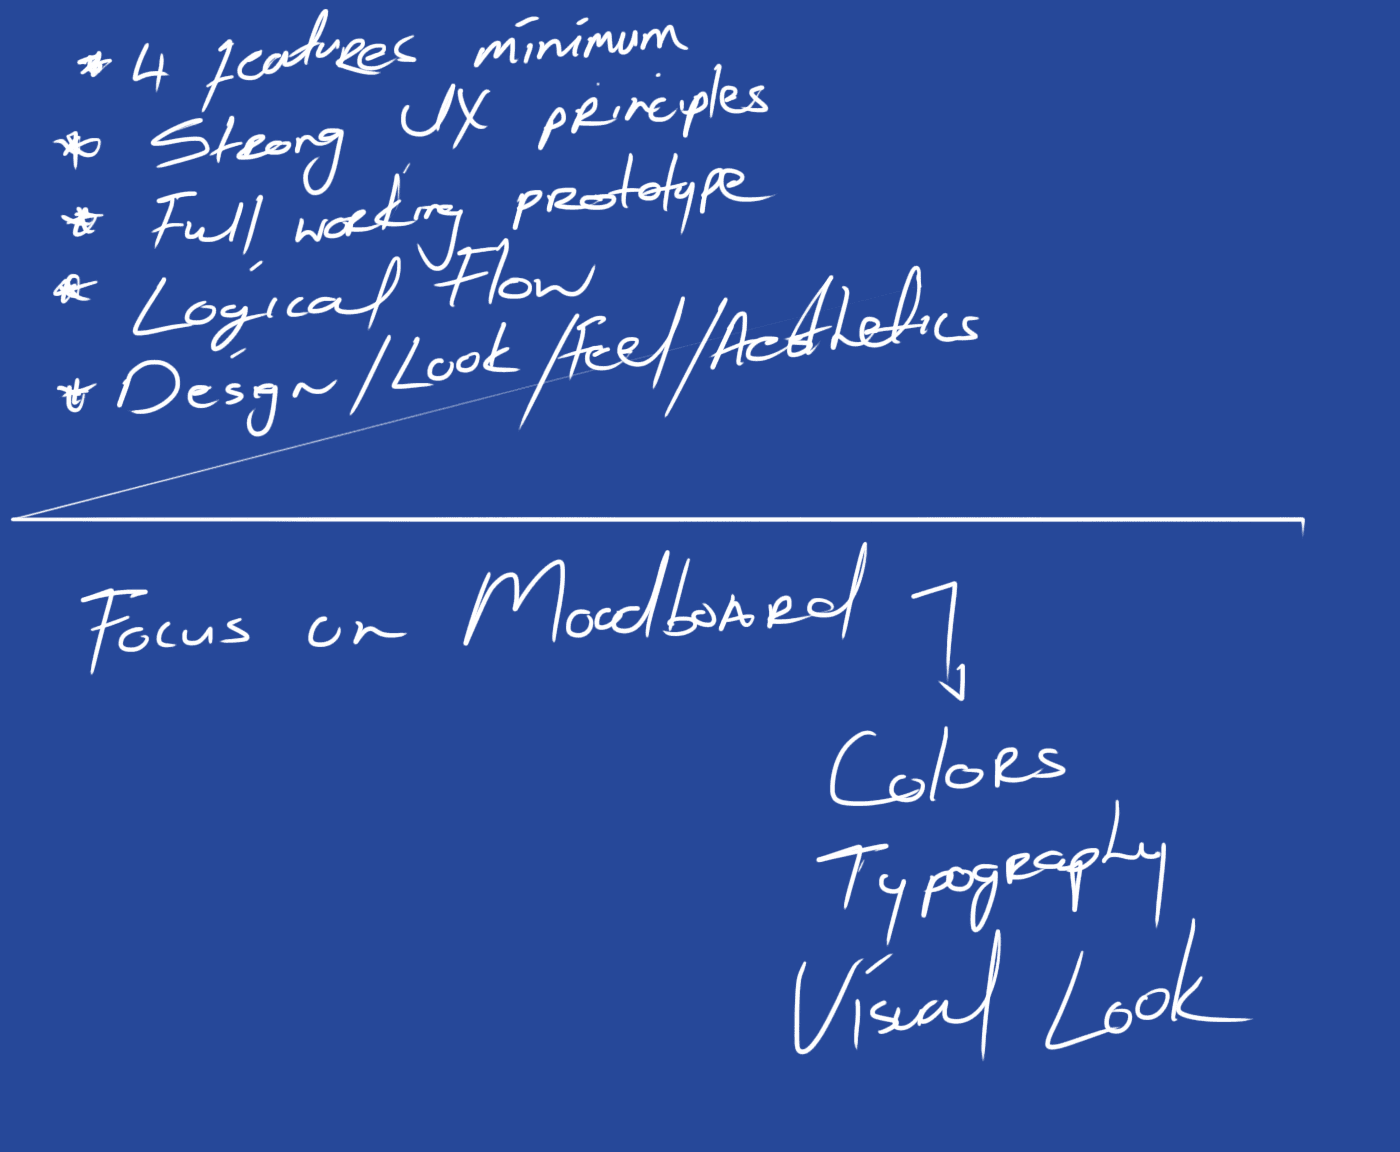 * 4 features minimum
* Strong UX principles
* Full working prototype
* Logical Flow
* Design/Look/Feel/Aesthetics
Focus on Moodboard
Colors
Typography
Visual Look